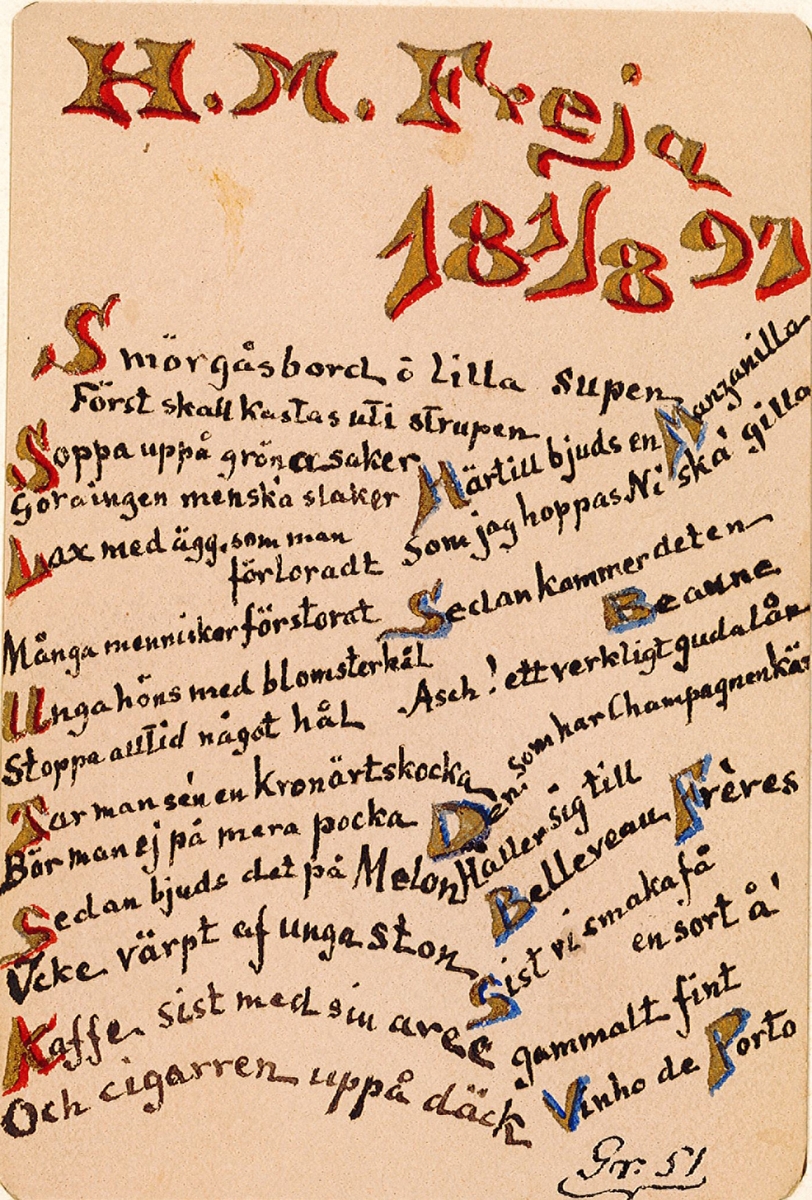 H. M. Freja
18 1/8 97
Smörgåsbord ö lilla supen
Först skall kastas uti strupen
Soppa uppå gröna saker
Göra ingen menska slaker
Lax med ägg, som man
förloradt
Många menniskor förstorat
Unga höns med blomsterkål
Stoppa alltid något hål
Tar man se'n en kronärtskocka
Bör man ej på mera pocka
Sedan bjuds det på Melon
Icke värpt af unga ston
Kaffe sist med sin avec
Och cigarren uppå däck
Härtill bjuds en Manzanilla
Som jag hoppas Ni ska' gilla
Sedan kommer det en
Beaune
Asch! ett verkligt gudalån
Den som har Champagnen kär
Håller sig till
Belleveau Frères
Sist vi smaka få
en sort å'
gammalt fint
Vinho de Porto
Gr. 51